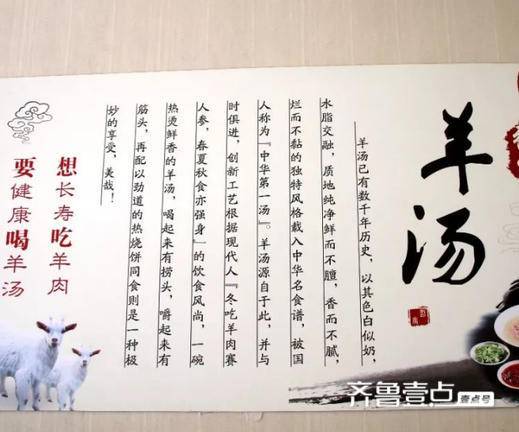 羊汤
羊汤已有数千年历史，以其色白似奶，
水脂交融，质地纯净鲜而不膻，香而不腻，
烂而不黏的独特风格载入中华名食谱，被国
人称为『中华第一汤』。羊汤源自于此，并与
时俱进，创新工艺根据现代人『冬吃羊肉赛
人参，春夏秋食亦强身』的饮食风尚，一碗
热烫鲜香的羊汤，喝起来有捞头，嚼起来有
筋头，再配以劲道的热烧饼同食则是一种极
妙的享受，美哉！
想长寿吃羊肉
要健康喝羊汤
齐鲁壹点
壹点号